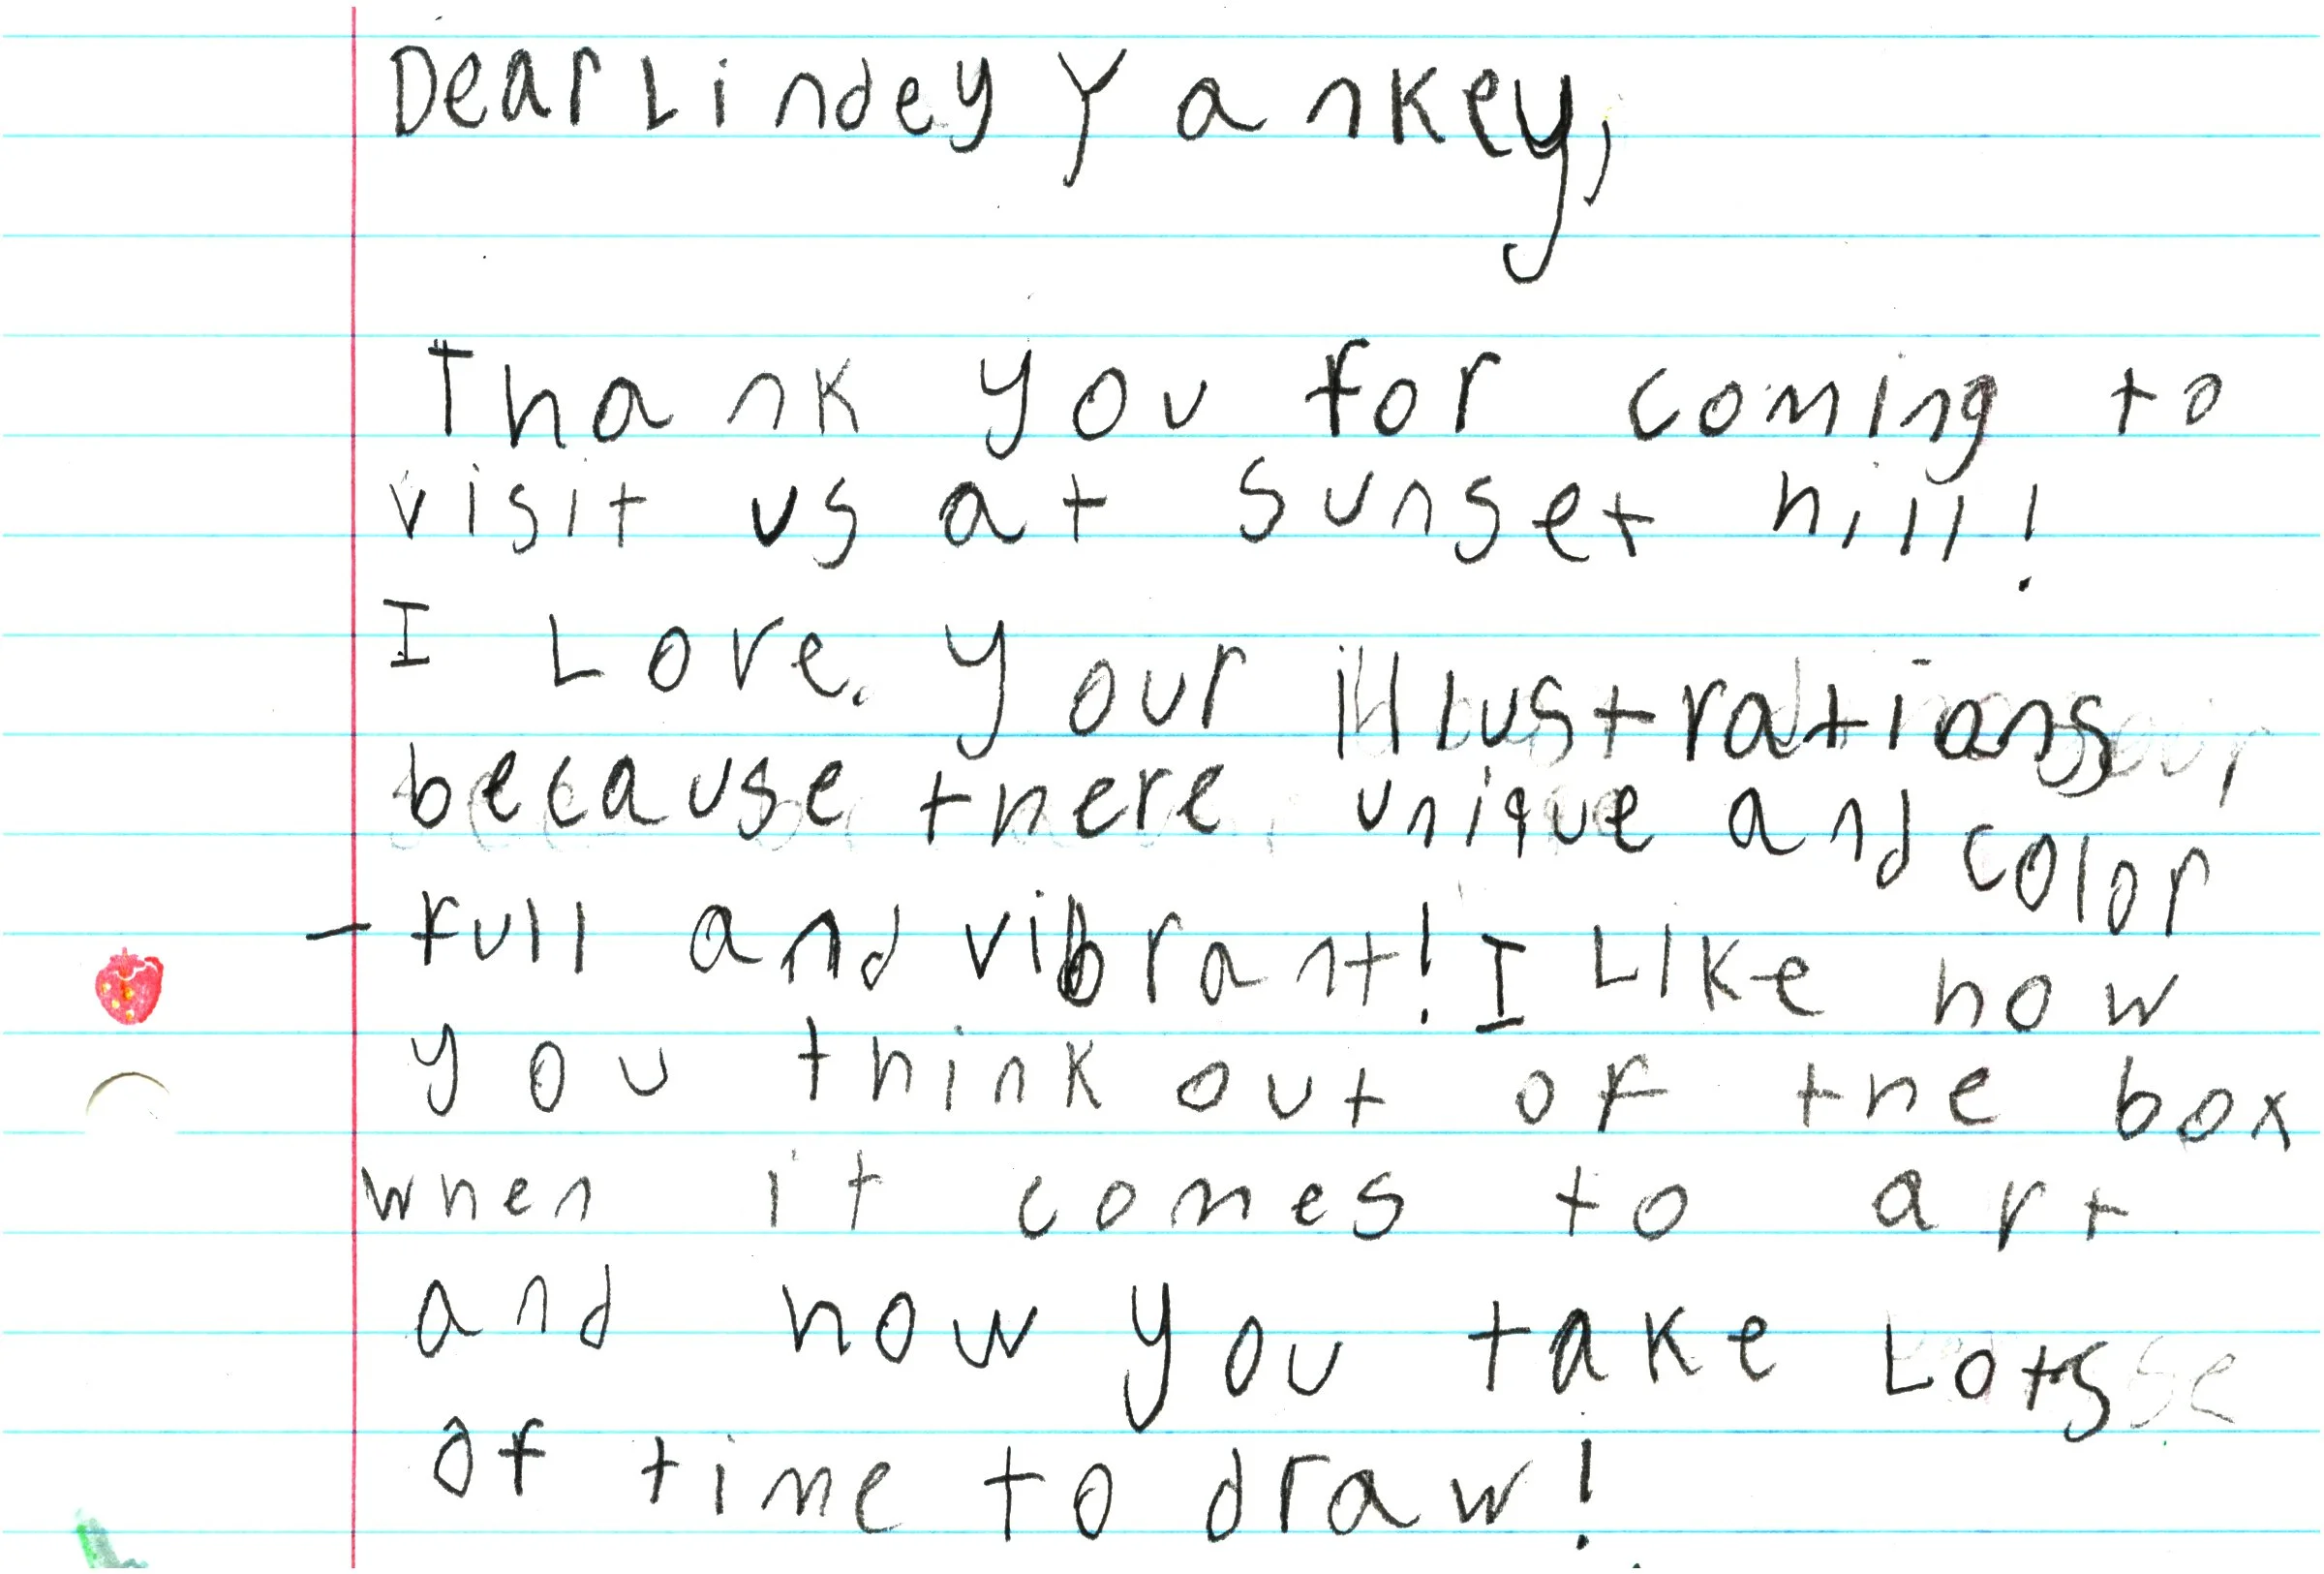 Dear Lindey Yankey,
Thank you for coming to
visit us at sunset hill!
I Love your illustrations
because there unique and color
-full and vibrant! I Like how
you think out of the box
when it comes to art
and how you take Lots
of time to draw!